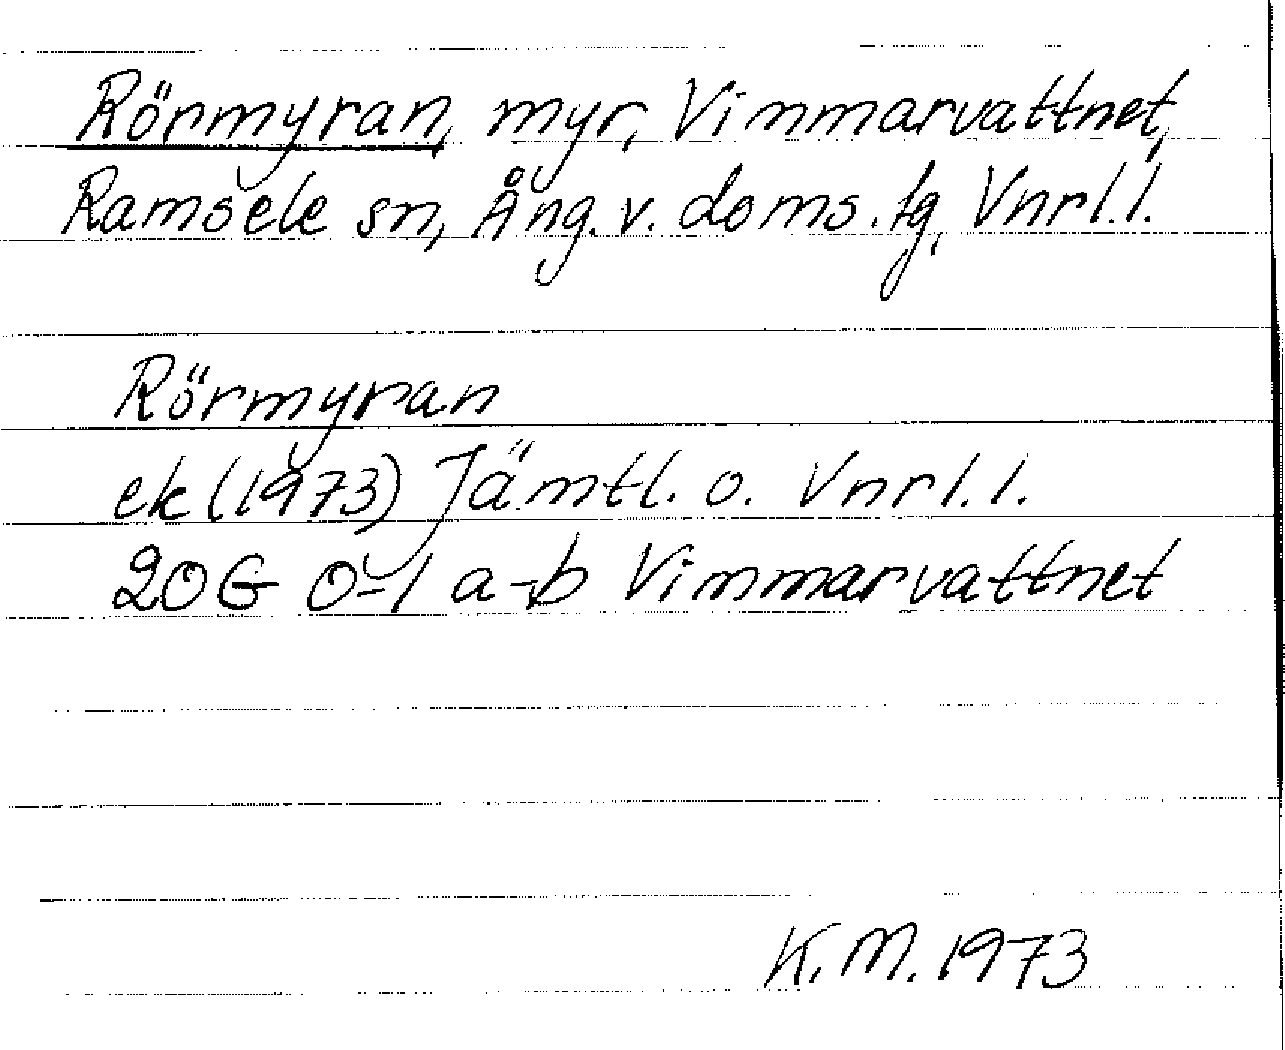 Rörmyran, myr, Vimmarvattnet,
Ramsele sn, Ång. v. doms. tg, Vnrl. l.
Rörmyran
ek (1973) Jämtl. o. Vnrl. l.
20G 0-1 a-b Vimmarvattnet
K. M. 1973